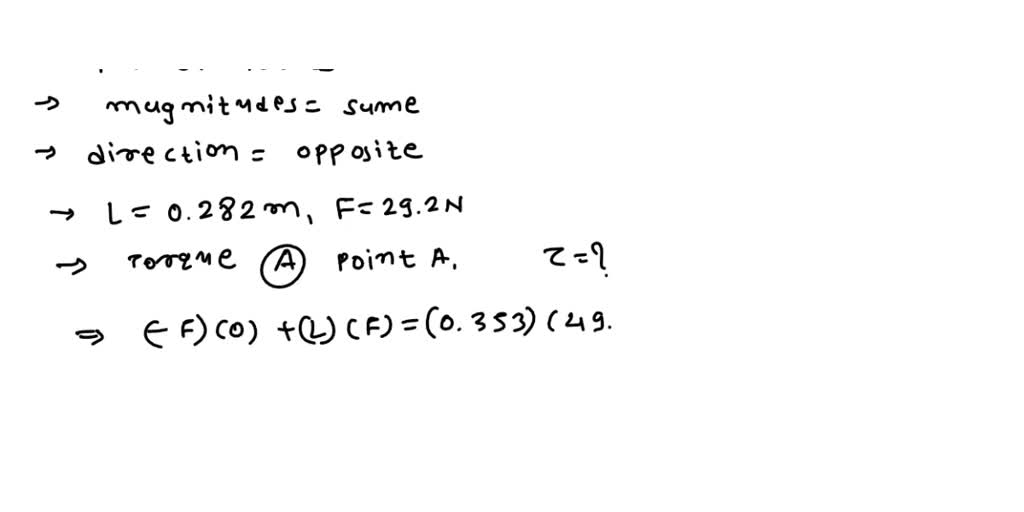 → mugnitudes = sume
→ direction = opposite
→ L = 0.282m, F = 29.2N
→ Torque A point A. τ = ?
⇒ (-F)(0) + (L)(F) = (0.353)(49.